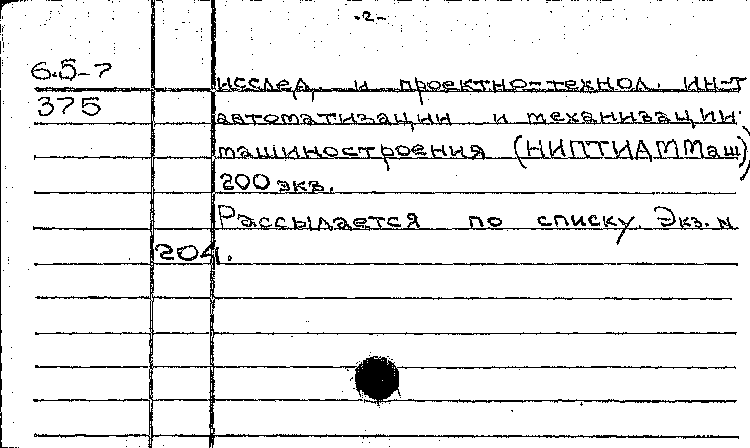 -2-
6.5-7
375
исслед. и проектно-технол. ин-т
автоматизации и механизации
машиностроения (НИПТИАММаш),
200 экз.
Рассылается по списку. Экз. N
204.